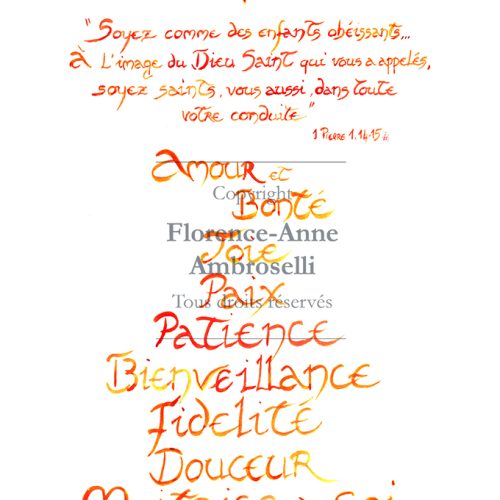 "Soyez comme des enfants obéissants...
à l'image du Dieu Saint qui vous a appelés,
soyez saints, vous aussi, dans toute
votre conduite"
1 Pierre 1.14-15
Amour et
Copyright
Bonté
Florence-Anne
Joie
Ambroselli
Paix
Tous droits réservés
Patience
Bienveillance
Fidélité
Douceur